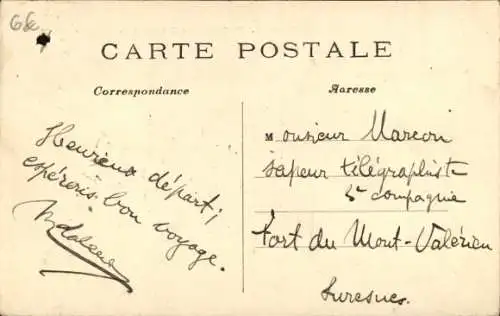 68
CARTE POSTALE
Correspondance
Adresse
Heureux départ;
espérons bon voyage.
Monsieur Marcon
sapeur télégraphiste
5e compagnie
Fort du Mont-Valérien
Suresnes.